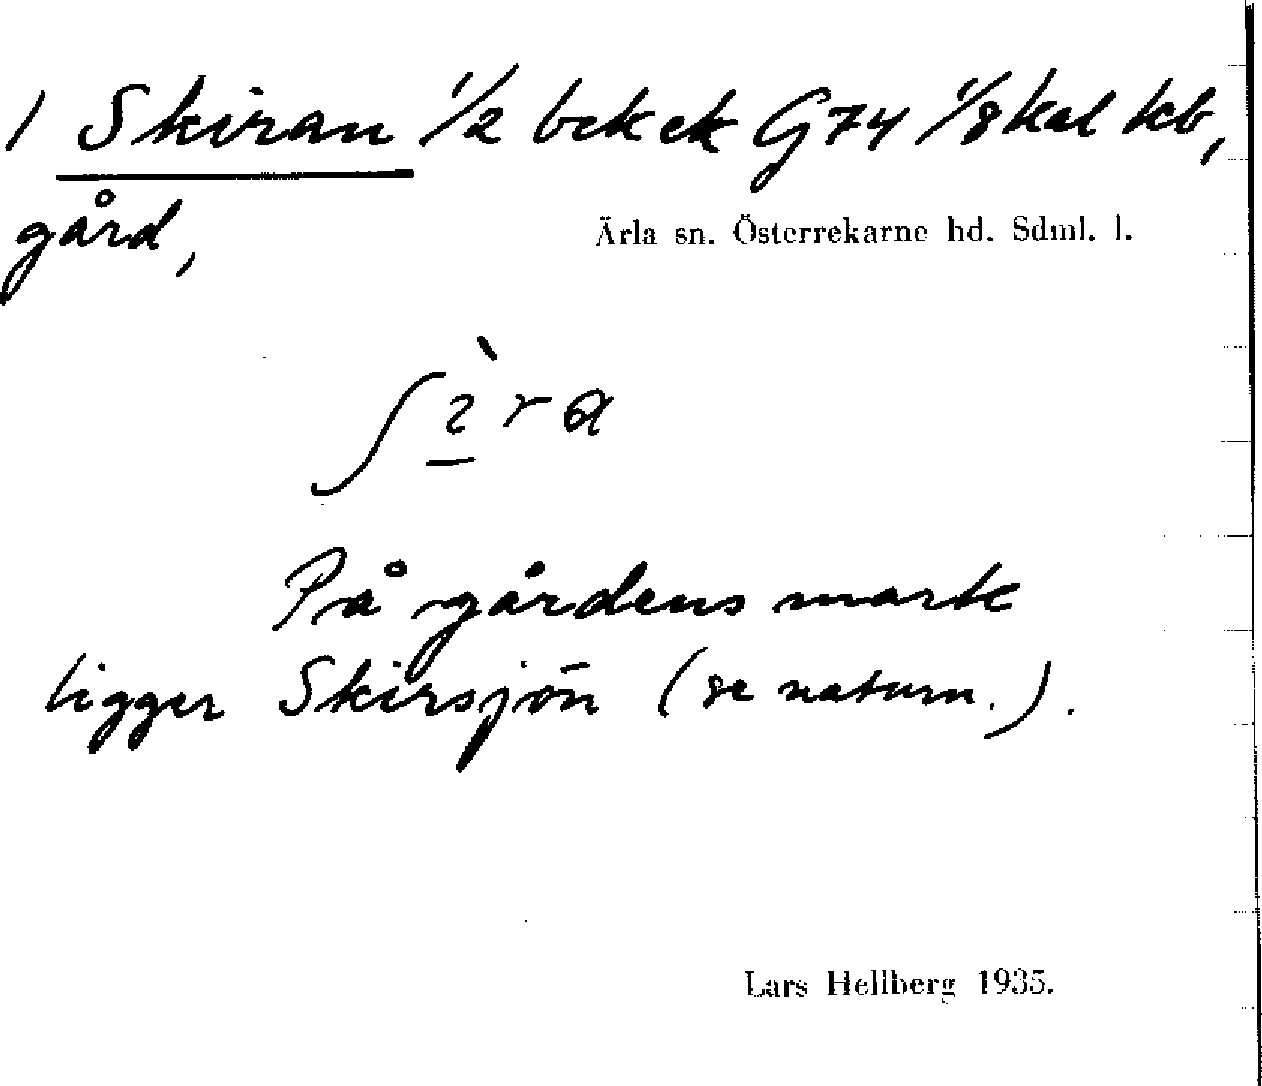 1 Skiran 1/2 bek ek G74 1/8 kal kb,
gård,
Ärla sn. Österrekarne hd. Sdml. l.
På gårdens mark
ligger Skirsjön (se naturn.).
Lars Hellberg 1935.